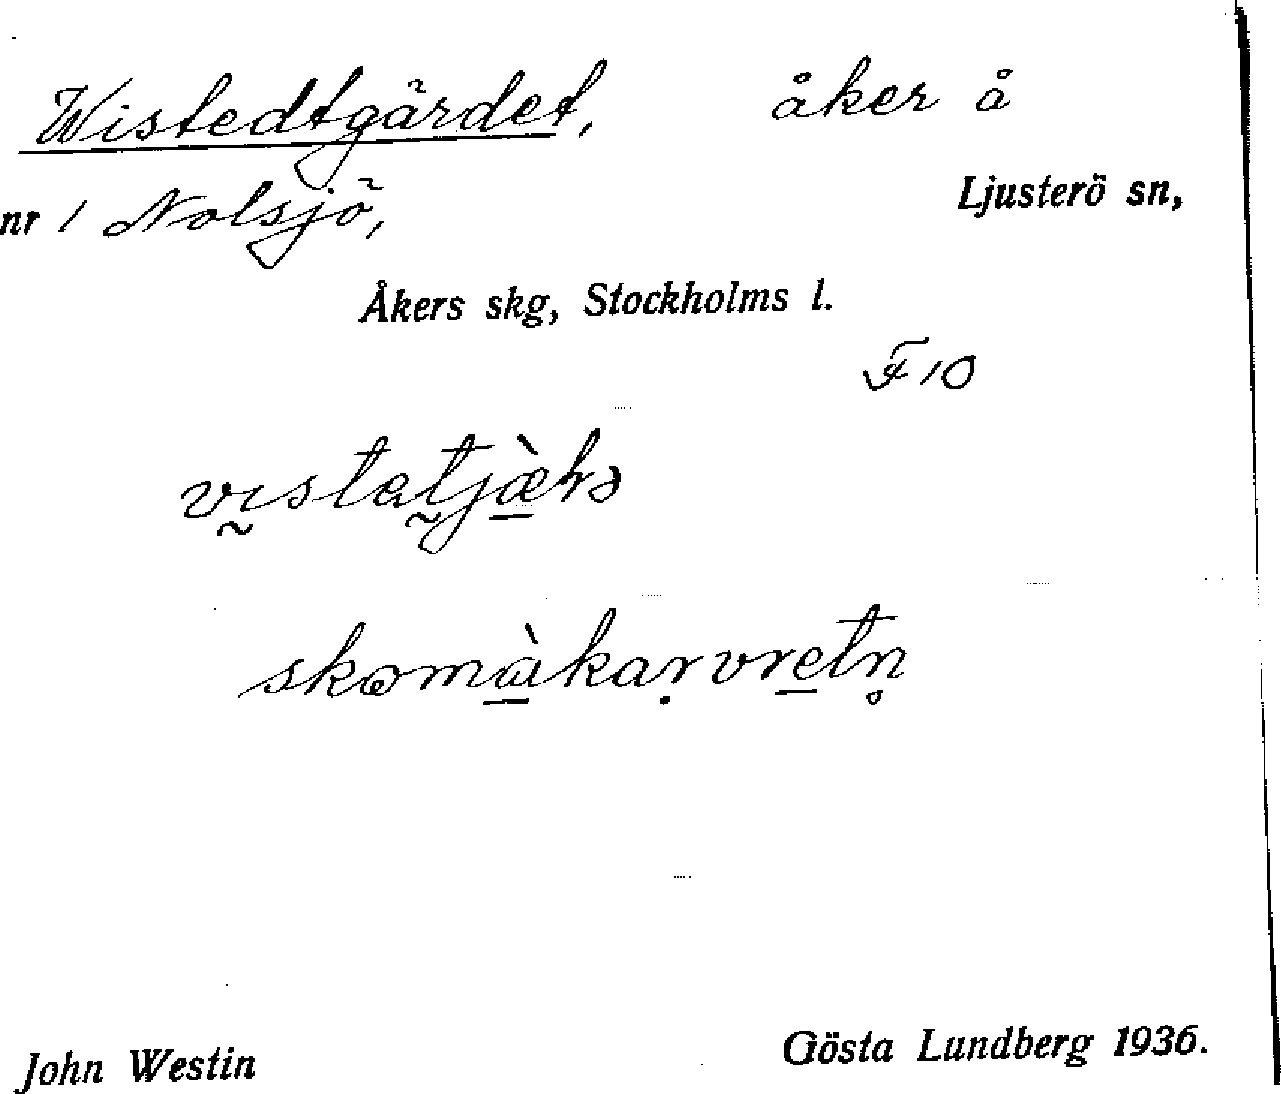 Wistedtgärdet, åker å
nr 1 Nolsjö, Ljusterö sn,
Åkers skg, Stockholms l.
F 10
skomàkaṛvretn̥
John Westin Gösta Lundberg 1936.